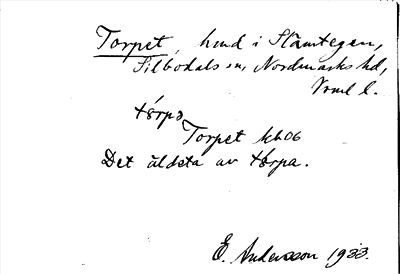 Torpet, hmd i Slämtegen,
Silbodals sn, Nordmarks hd,
Vrml l.
tórpa
Torpet kb06
Det äldsta av tórpa.
E. Andersson 1933.